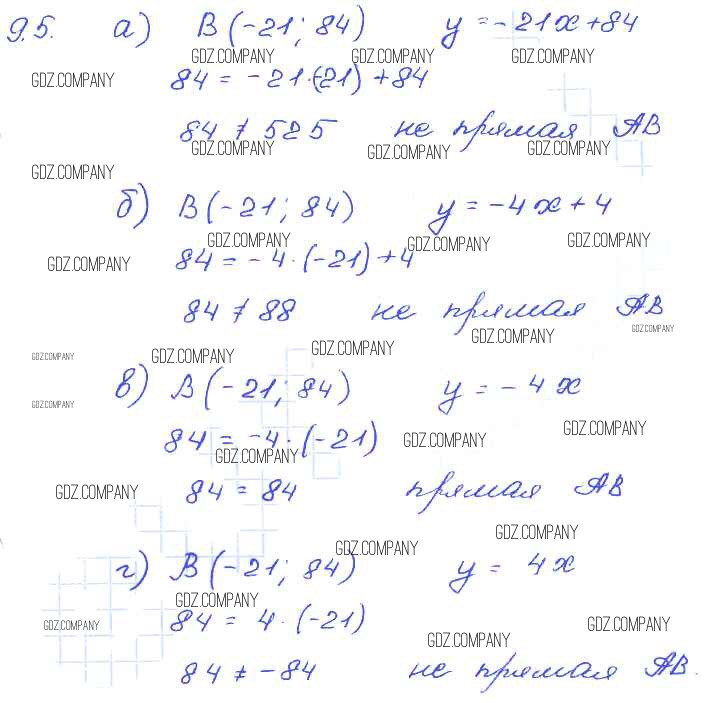 9.5. а) В (-21; 84) y = -21x+84
GDZ.COMPANY GDZ.COMPANY GDZ.COMPANY
GDZ.COMPANY 84 = -21·(-21) +84
84 ≠ 525 не прямая АВ
GDZ.COMPANY GDZ.COMPANY GDZ.COMPANY
GDZ.COMPANY
б) В (-21; 84) y = -4x + 4
GDZ.COMPANY GDZ.COMPANY GDZ.COMPANY
GDZ.COMPANY 84 = -4·(-21) +4
84 ≠ 88 не прямая АВ
GDZ.COMPANY GDZ.COMPANY
GDZ.COMPANY GDZ.COMPANY GDZ.COMPANY
в) В (-21; 84) y = -4x
GDZ.COMPANY
84 = -4·(-21) GDZ.COMPANY GDZ.COMPANY
GDZ.COMPANY
GDZ.COMPANY 84 = 84 прямая АВ
GDZ.COMPANY
GDZ.COMPANY
г) В (-21; 84) y = 4x
GDZ.COMPANY
GDZ.COMPANY 84 = 4·(-21) GDZ.COMPANY
GDZ.COMPANY
84 ≠ -84 не прямая АВ.